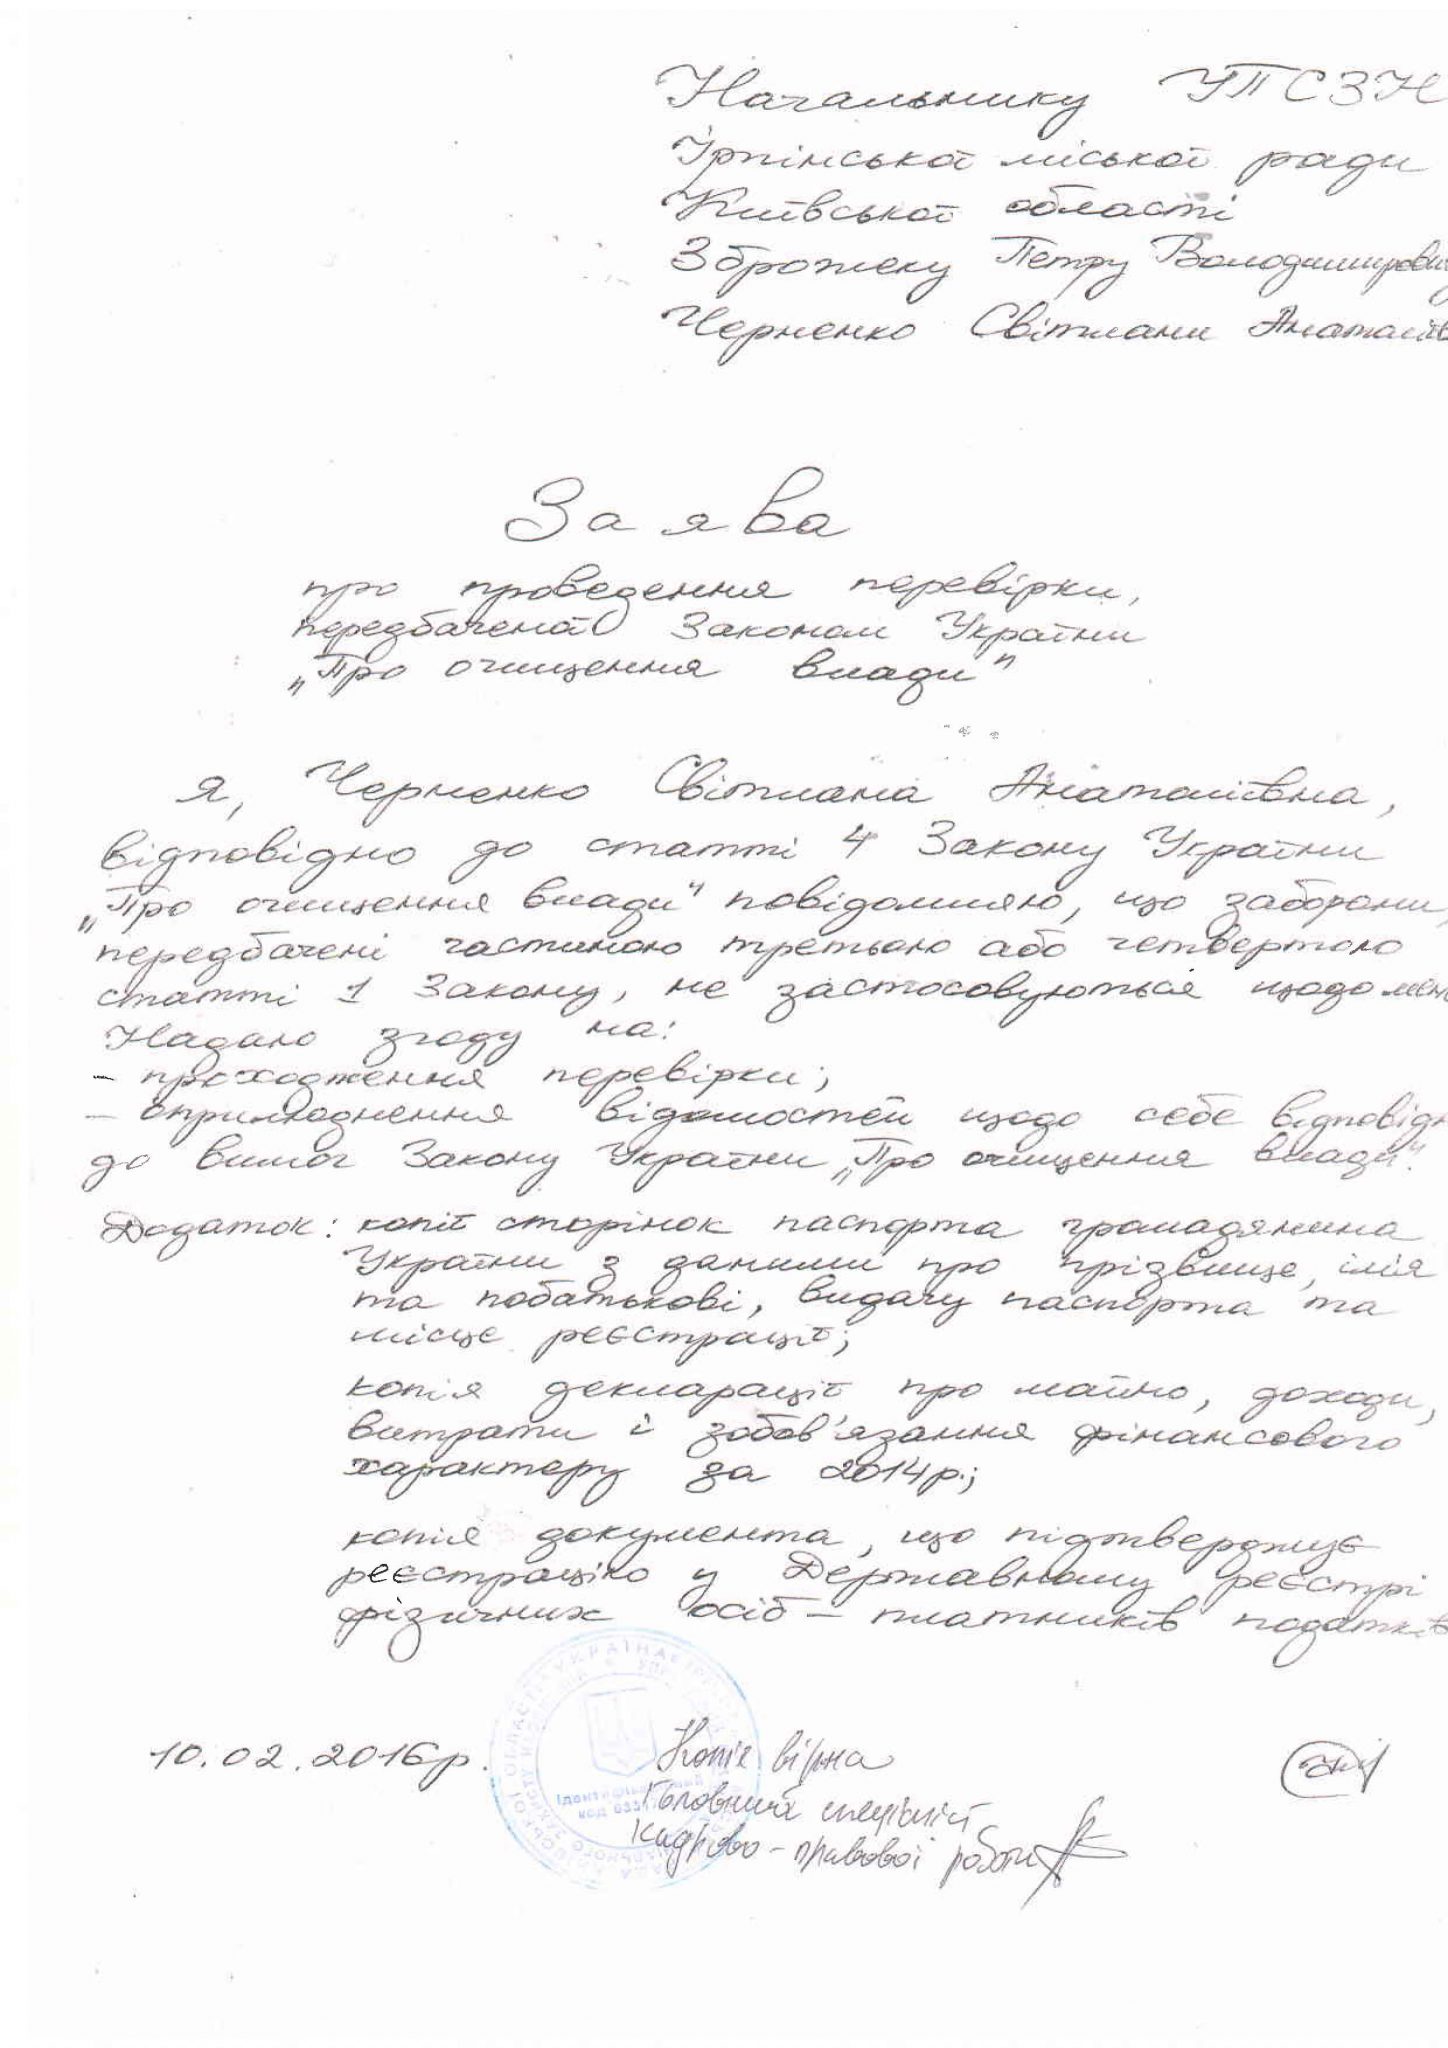 Начальнику УПСЗН
Ірпінської міської ради
Київської області
Зброжеку Петру Володимирович
Черненко Світлани Анатолії
Заява
про проведення перевірки,
передбаченої Законом України
„Про очищення влади"
Я, Черненко Світлана Анатоліївна,
відповідно до статті 4 Закону України
„Про очищення влади" повідомляю, що заборони,
передбачені частиною третьою або четвертою
статті 1 Закону, не застосовуються щодо мене
Надаю згоду на:
- проходження перевірки;
- оприлюднення відомостей щодо себе відповідн
до вимог Закону України „Про очищення влади".
Додаток: копії сторінок паспорта громадянина
України з даними про прізвище, ім'я
та побатькові, видачу паспорта та
місце реєстрації;
копія декларації про майно, доходи,
витрати і зобов'язання фінансового
характеру за 2014р.;
копія документа, що підтверджує
реєстрацію у Державному реєстрі
фізичних осіб – платників податків
10.02.2016р.
Копія вірна
Головний спеціаліст
кадрово-правової роботи
УКРАЇНА
Ідентифікаційний
код